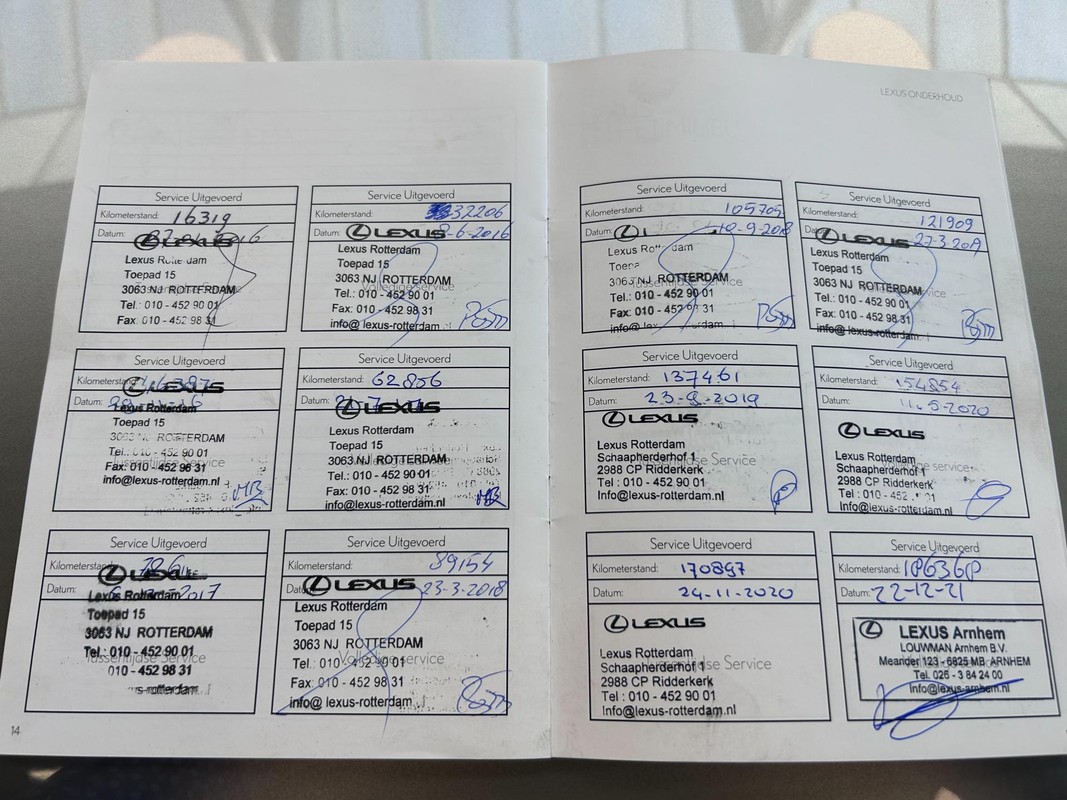 LEXUS ONDERHOUD
Service Uitgevoerd
Kilometerstand: 16319
Datum:
LEXUS
Lexus Rotterdam
Toepad 15
3063 NJ ROTTERDAM
Tel.: 010 - 452 90 01
Fax: 010 - 452 98 31
Service Uitgevoerd
Kilometerstand: 32206
Datum: 8-6-2016
LEXUS
Lexus Rotterdam
Toepad 15
3063 NJ ROTTERDAM
Volledige Service
Tel.: 010 - 452 90 01
Fax: 010 - 452 98 31
info@lexus-rotterdam
Service Uitgevoerd
Kilometerstand: 105705
Datum: 10-9-2018
Rotterdam
3063 NJ ROTTERDAM
Tel.: 010 - 452 90 01
Fax: 010 - 452 98 31
Service Uitgevoerd
Kilometerstand: 121909
Datum: 27-3-2019
LEXUS
Lexus Rotterdam
Toepad 15
3063 NJ ROTTERDAM
Tel.: 010 - 452 90 01
Fax: 010 - 452 98 31
info@lexus-rotterdam
Service Uitgevoerd
Kilometerstand:
Datum:
LEXUS
Lexus Rotterdam
Toepad 15
3063 NJ ROTTERDAM
Tel.: 010 - 452 90 01
Tussentijdse Service
Fax: 010 - 452 98 31
info@lexus-rotterdam.nl
MB
Service Uitgevoerd
Kilometerstand: 62856
Datum:
LEXUS
Lexus Rotterdam
Toepad 15
3063 NJ ROTTERDAM
Volledige Service
Tel.: 010 - 452 90 01
Fax: 010 - 452 98 31
info@lexus-rotterdam.nl
MB
Service Uitgevoerd
Kilometerstand: 137461
Datum: 23-9-2019
LEXUS
Lexus Rotterdam
Schaapherderhof 1
Service
2988 CP Ridderkerk
Tel : 010 - 452 90 01
Info@lexus-rotterdam.nl
Service Uitgevoerd
Kilometerstand: 154854
Datum: 11-5-2020
LEXUS
Lexus Rotterdam
Schaapherderhof 1
service
2988 CP Ridderkerk
Tel : 010 - 452
Info@lexus-rotterdam.nl
Service Uitgevoerd
Kilometerstand:
Datum: 2017
LEXUS
Lexus Rotterdam
Toepad 15
3063 NJ ROTTERDAM
Tel.: 010 - 452 90 01
Tussentijdse Service
010 - 452 98 31
s-rotterdam
Service Uitgevoerd
Kilometerstand: 89154
Datum: 23-3-2018
LEXUS
Lexus Rotterdam
Toepad 15
3063 NJ ROTTERDAM
Tel.: 010 - 452 90 01
Volledige Service
Fax: 010 - 452 98 31
info@lexus-rotterdam
Service Uitgevoerd
Kilometerstand: 170897
Datum: 24-11-2020
LEXUS
Lexus Rotterdam
Schaapherderhof 1
Service
2988 CP Ridderkerk
Tel : 010 - 452 90 01
Info@lexus-rotterdam.nl
Service Uitgevoerd
Kilometerstand: 186368
Datum: 22-12-21
LEXUS Arnhem
LOUWMAN Arnhem B.V.
Meander 123 - 6825 MB ARNHEM
Tel. 026 - 3 84 24 00
info@lexus-arnhem.nl
14